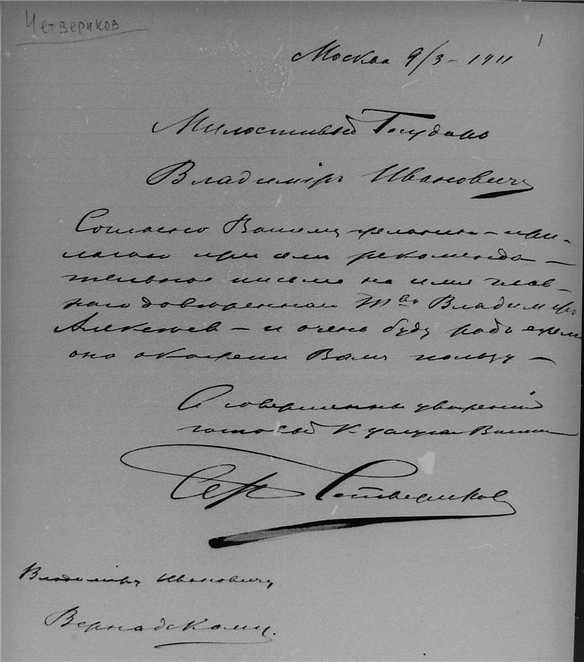 Четвериков
1
Москва 9/3 - 1911
Милостивый Государь
Владиміръ Ивановичъ
Согласно Вашему желанію – при-
лагаю при семъ рекоменда-
тельное письмо на имя глав-
наго довѣреннаго Т-ва Владиміръ
Алексѣевъ – и очень буду радъ если
оно окажетъ Вамъ пользу –
Съ совершеннымъ уваженіемъ
готовый къ услугамъ Вашимъ
Сер Четвериков
Владиміру Ивановичу
Вернадскому.